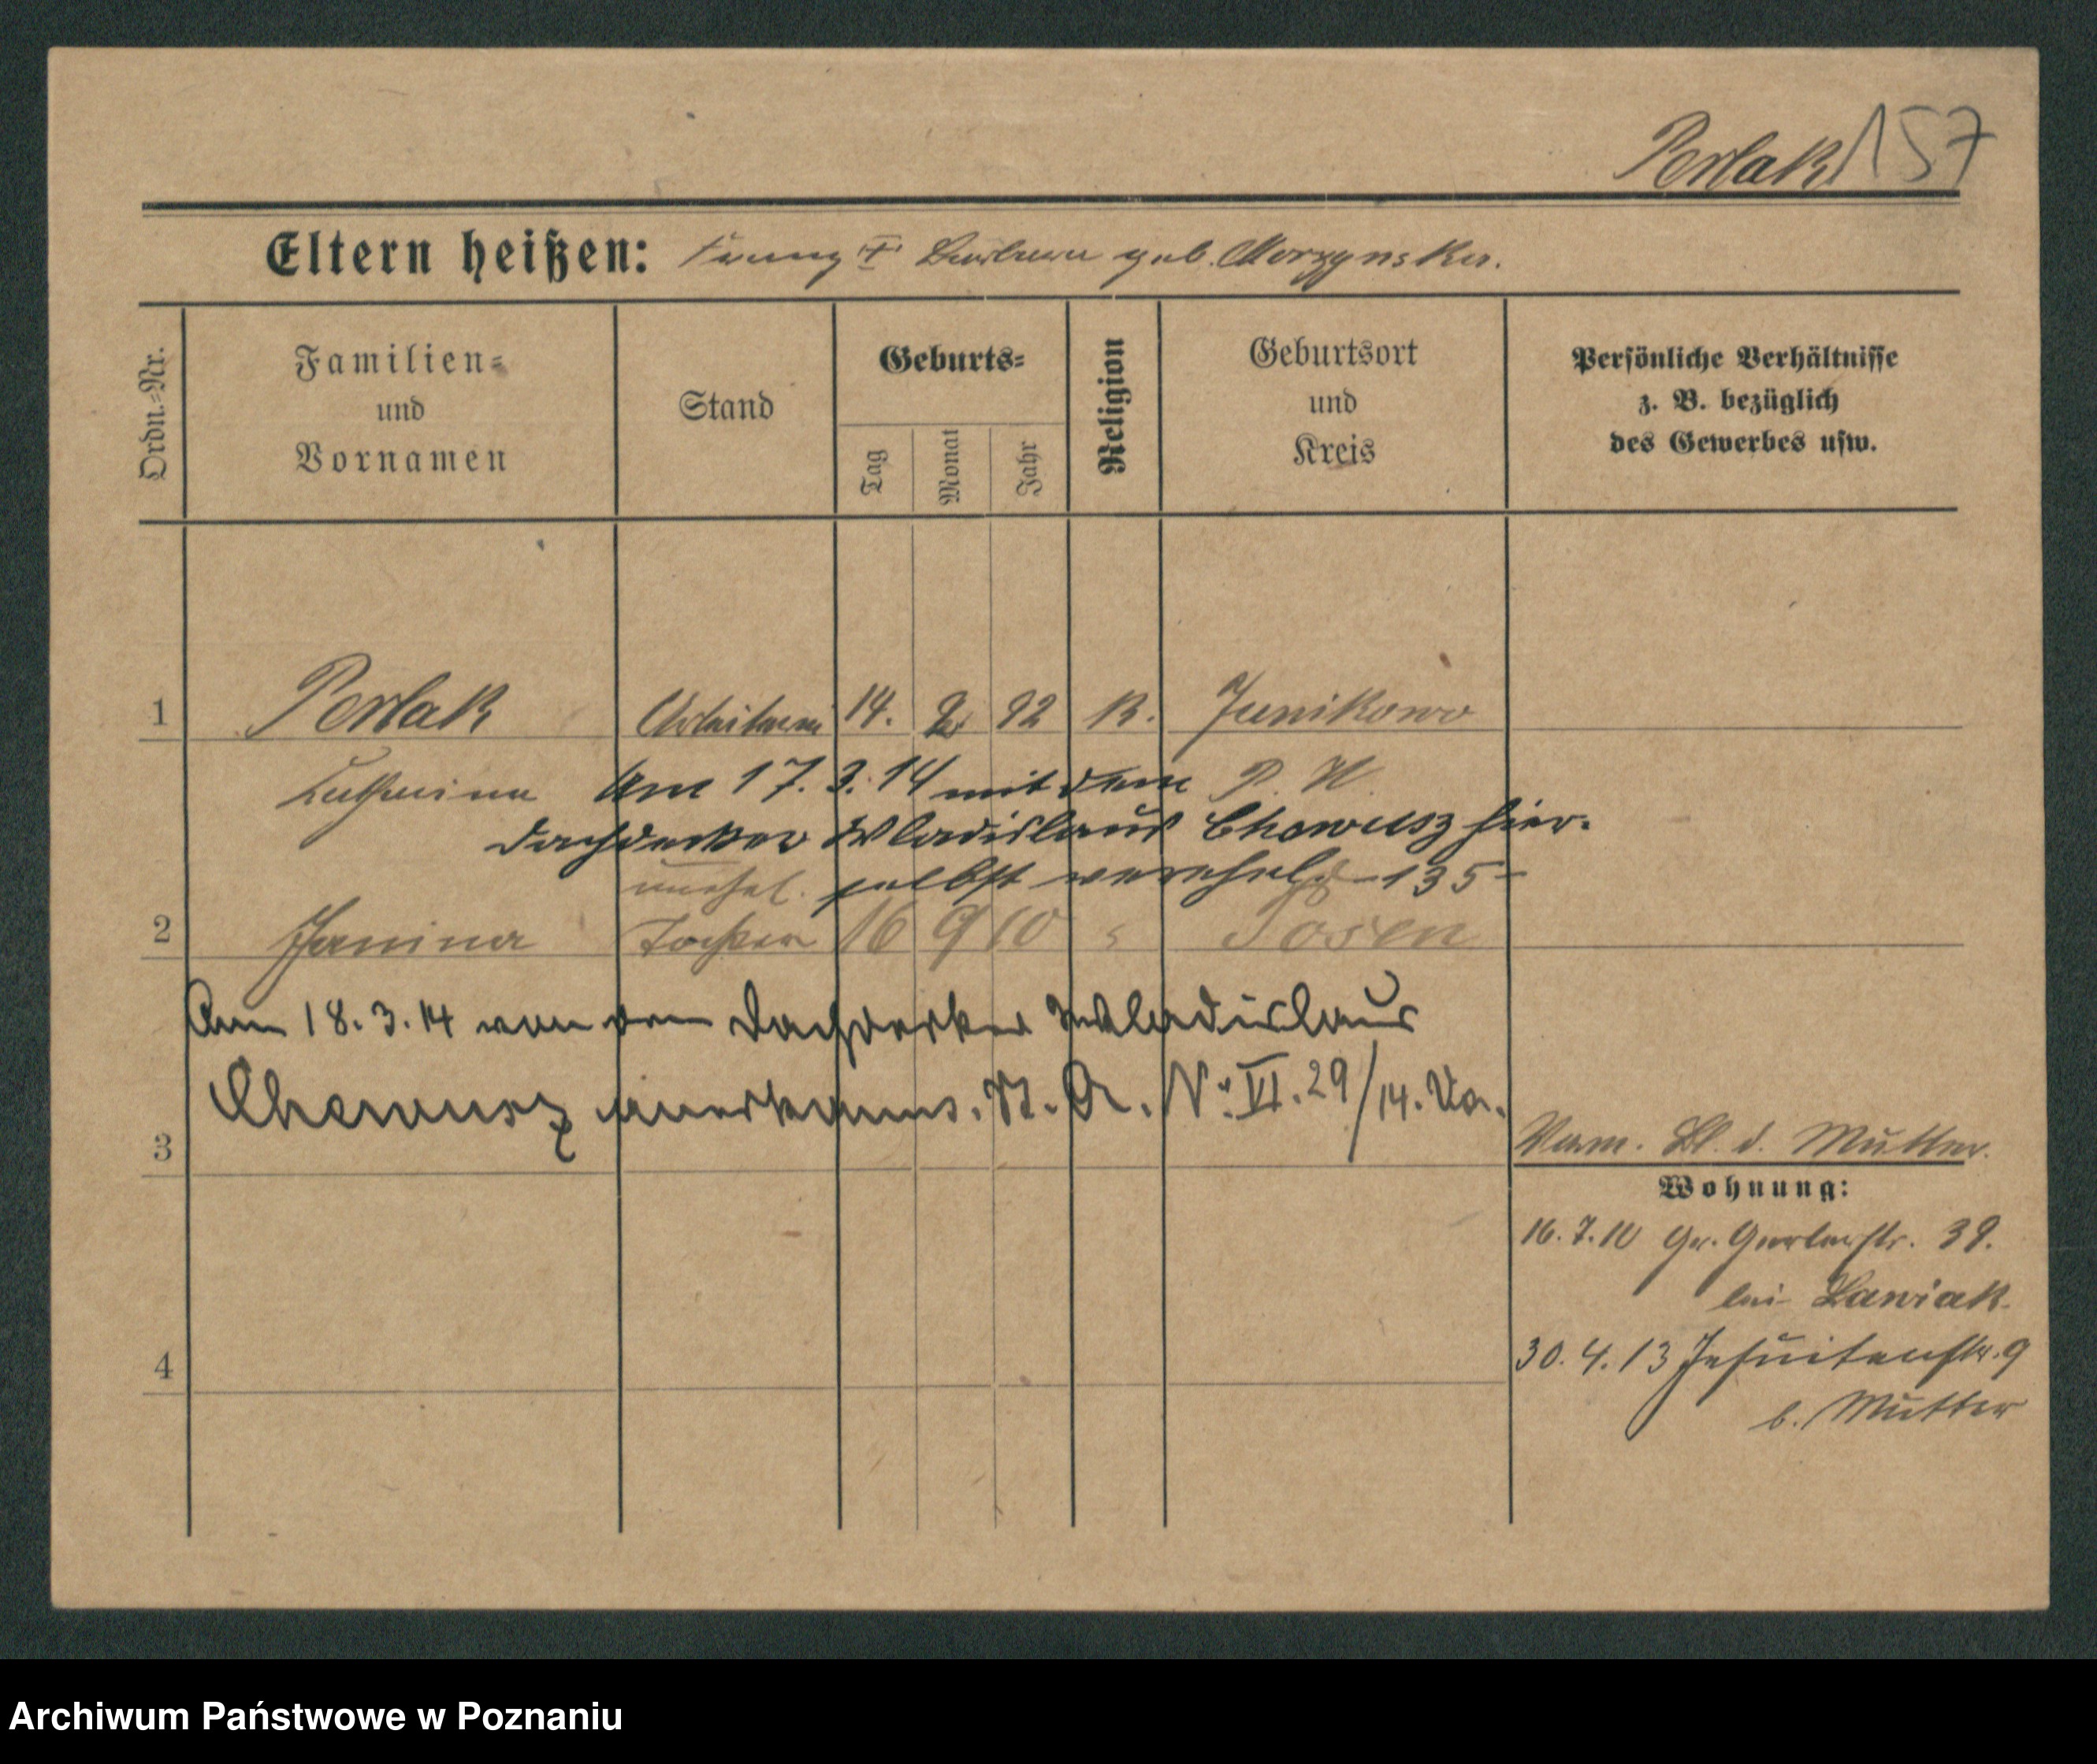 Perlak 157
Eltern heißen: Franz † Barbara geb. Morzynska.
Ordn.-Nr.
Familien-
und
Vornamen
Stand
Geburts-
Tag
Monat
Jahr
Religion
Geburtsort
und
Kreis
Persönliche Verhältnisse
z. B. bezüglich
des Gewerbes usw.
1 Perlak Arbeiterin 14. 92 K. Junikowo
Katharina P. W.
Am 17. 3. 14 mit dem
Dachdecker Wladislaus Chowusz hier-
selbst verehel. -135-
unehel.
2 Janina Tochter 16 9 10 " Posen
Am 18. 3. 14 von dem Dachdecker Wladislaus
Chowusz anerkannt. St. A. Nr. VI. 29/14.
3
Verm. Bl. d. Mutter.
Wohnung:
16. 7. 10 Gr. Gerberstr. 39.
bei Lawiak.
4
30. 4. 13 Jesuitenstr. 9
b. Mutter
Archiwum Państwowe w Poznaniu